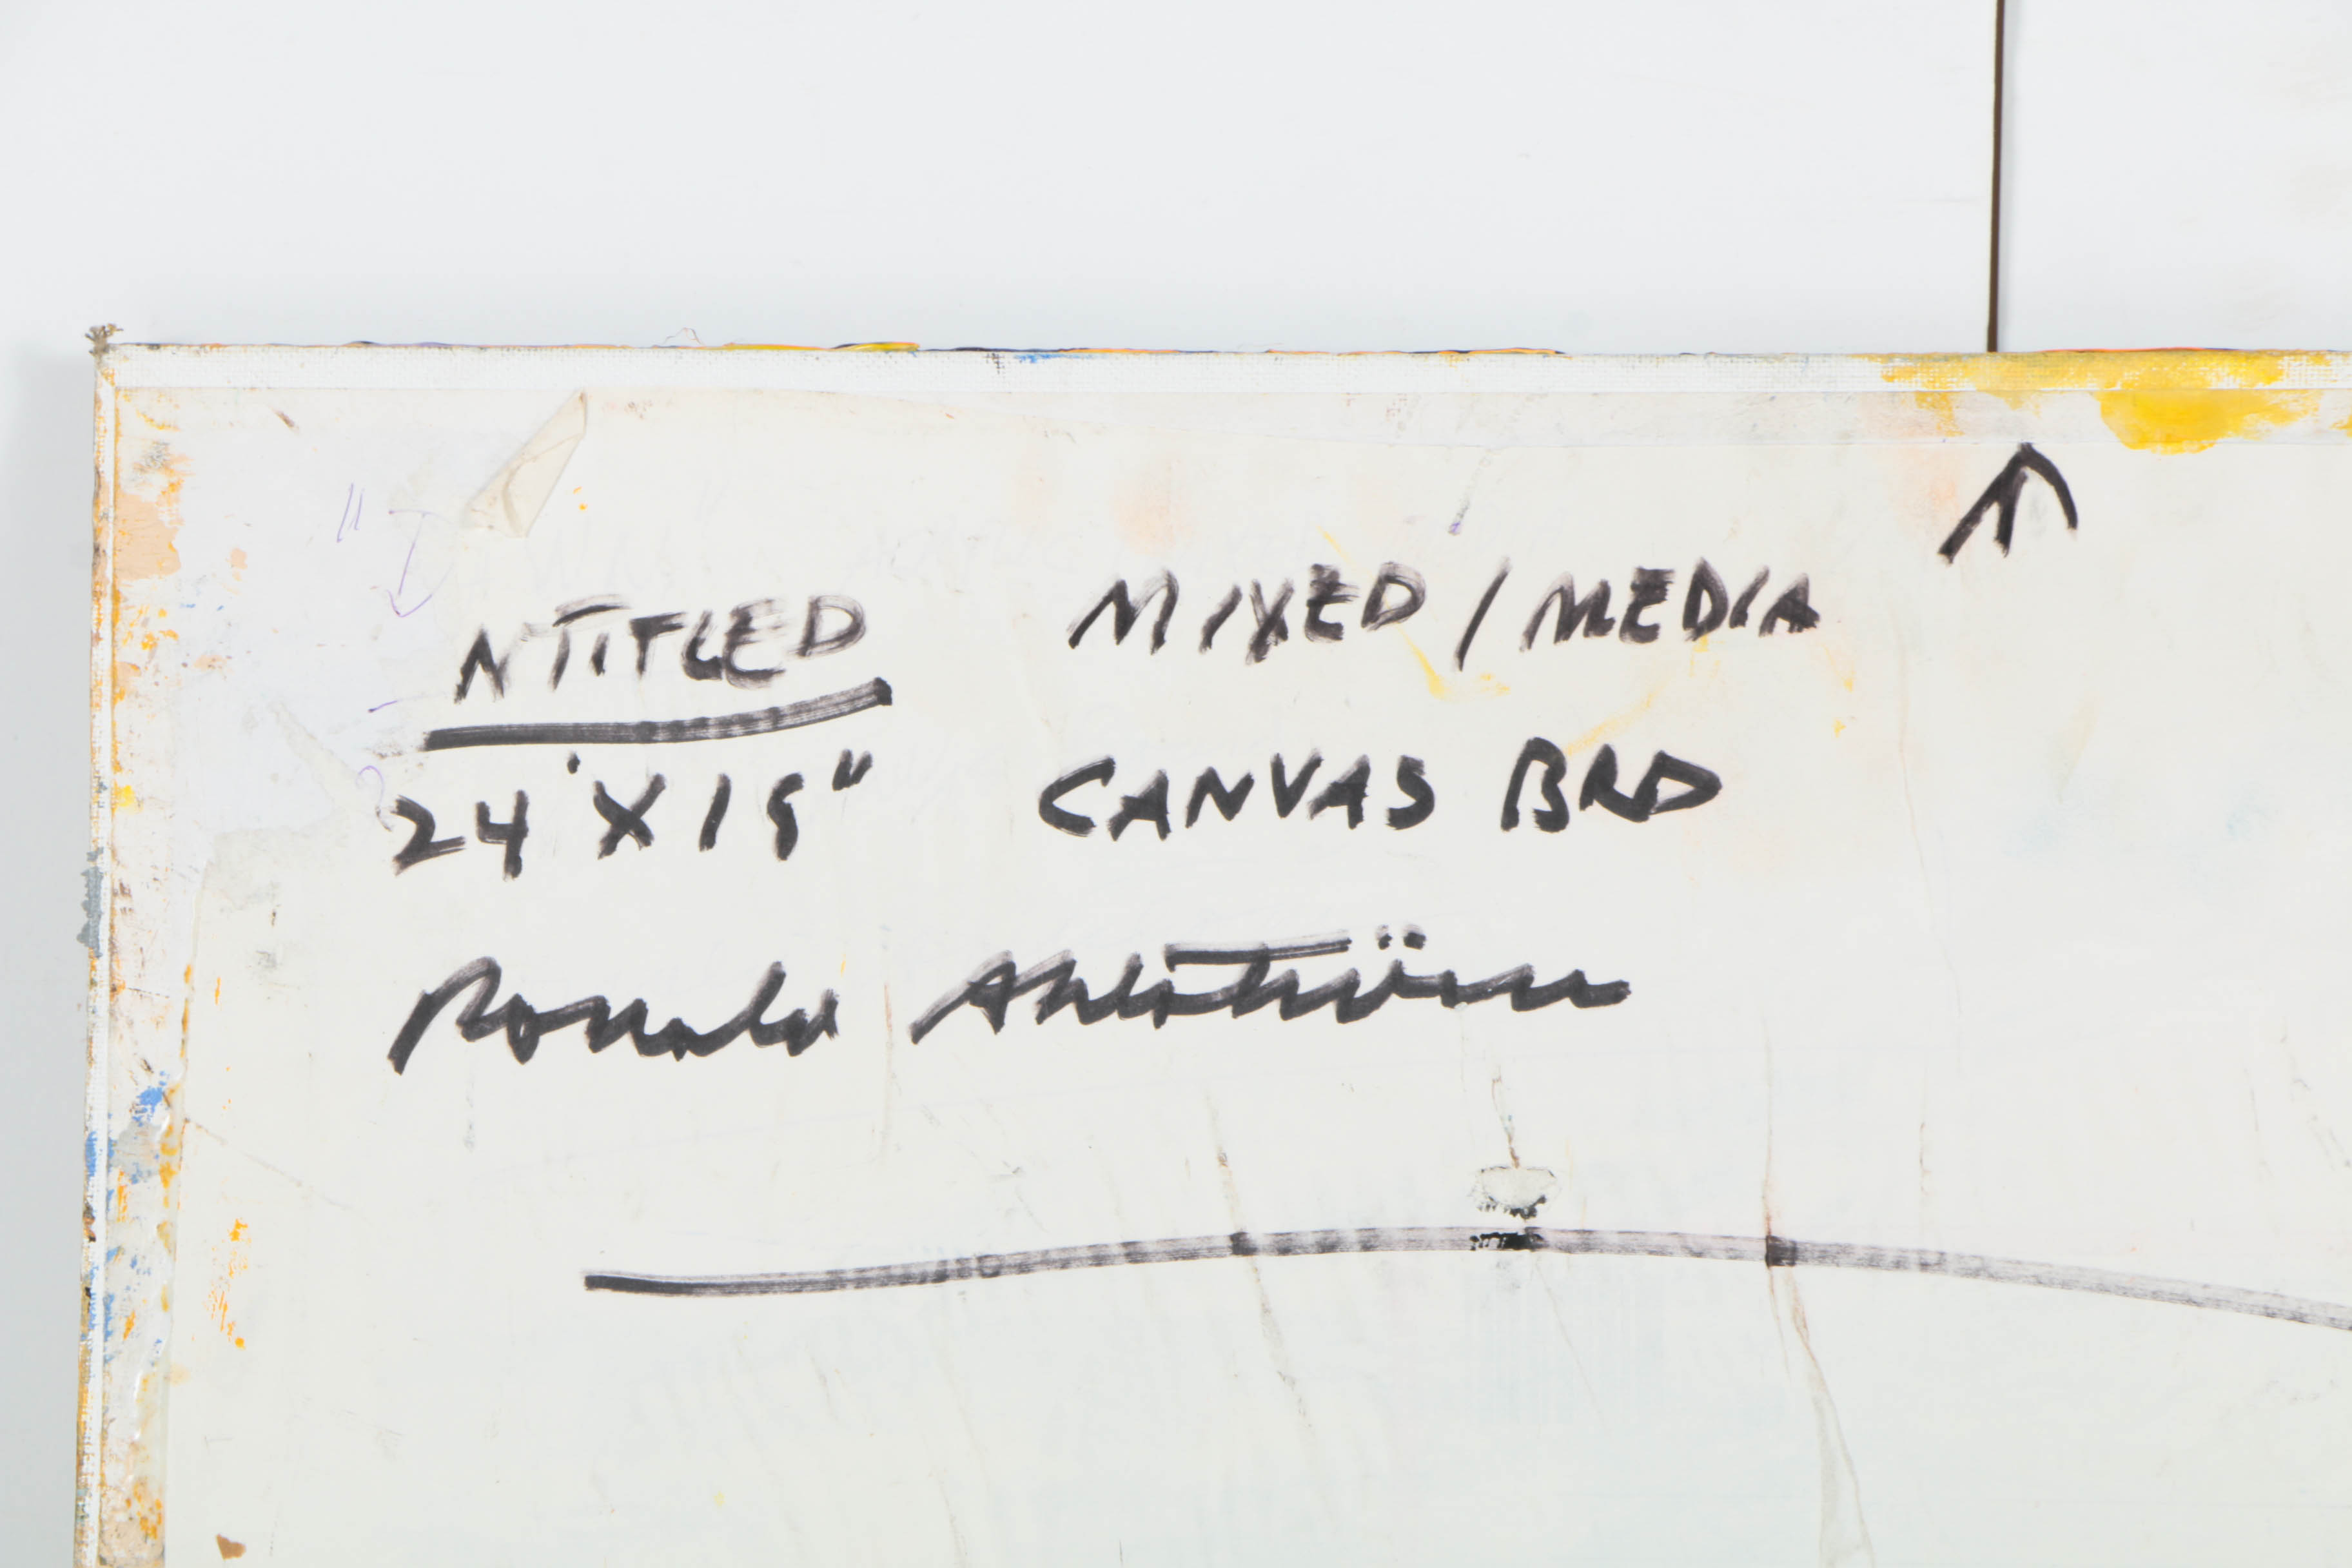 NTITLED MIXED / MEDIA
24' X 18" CANVAS BRD
Ronald Ahlström